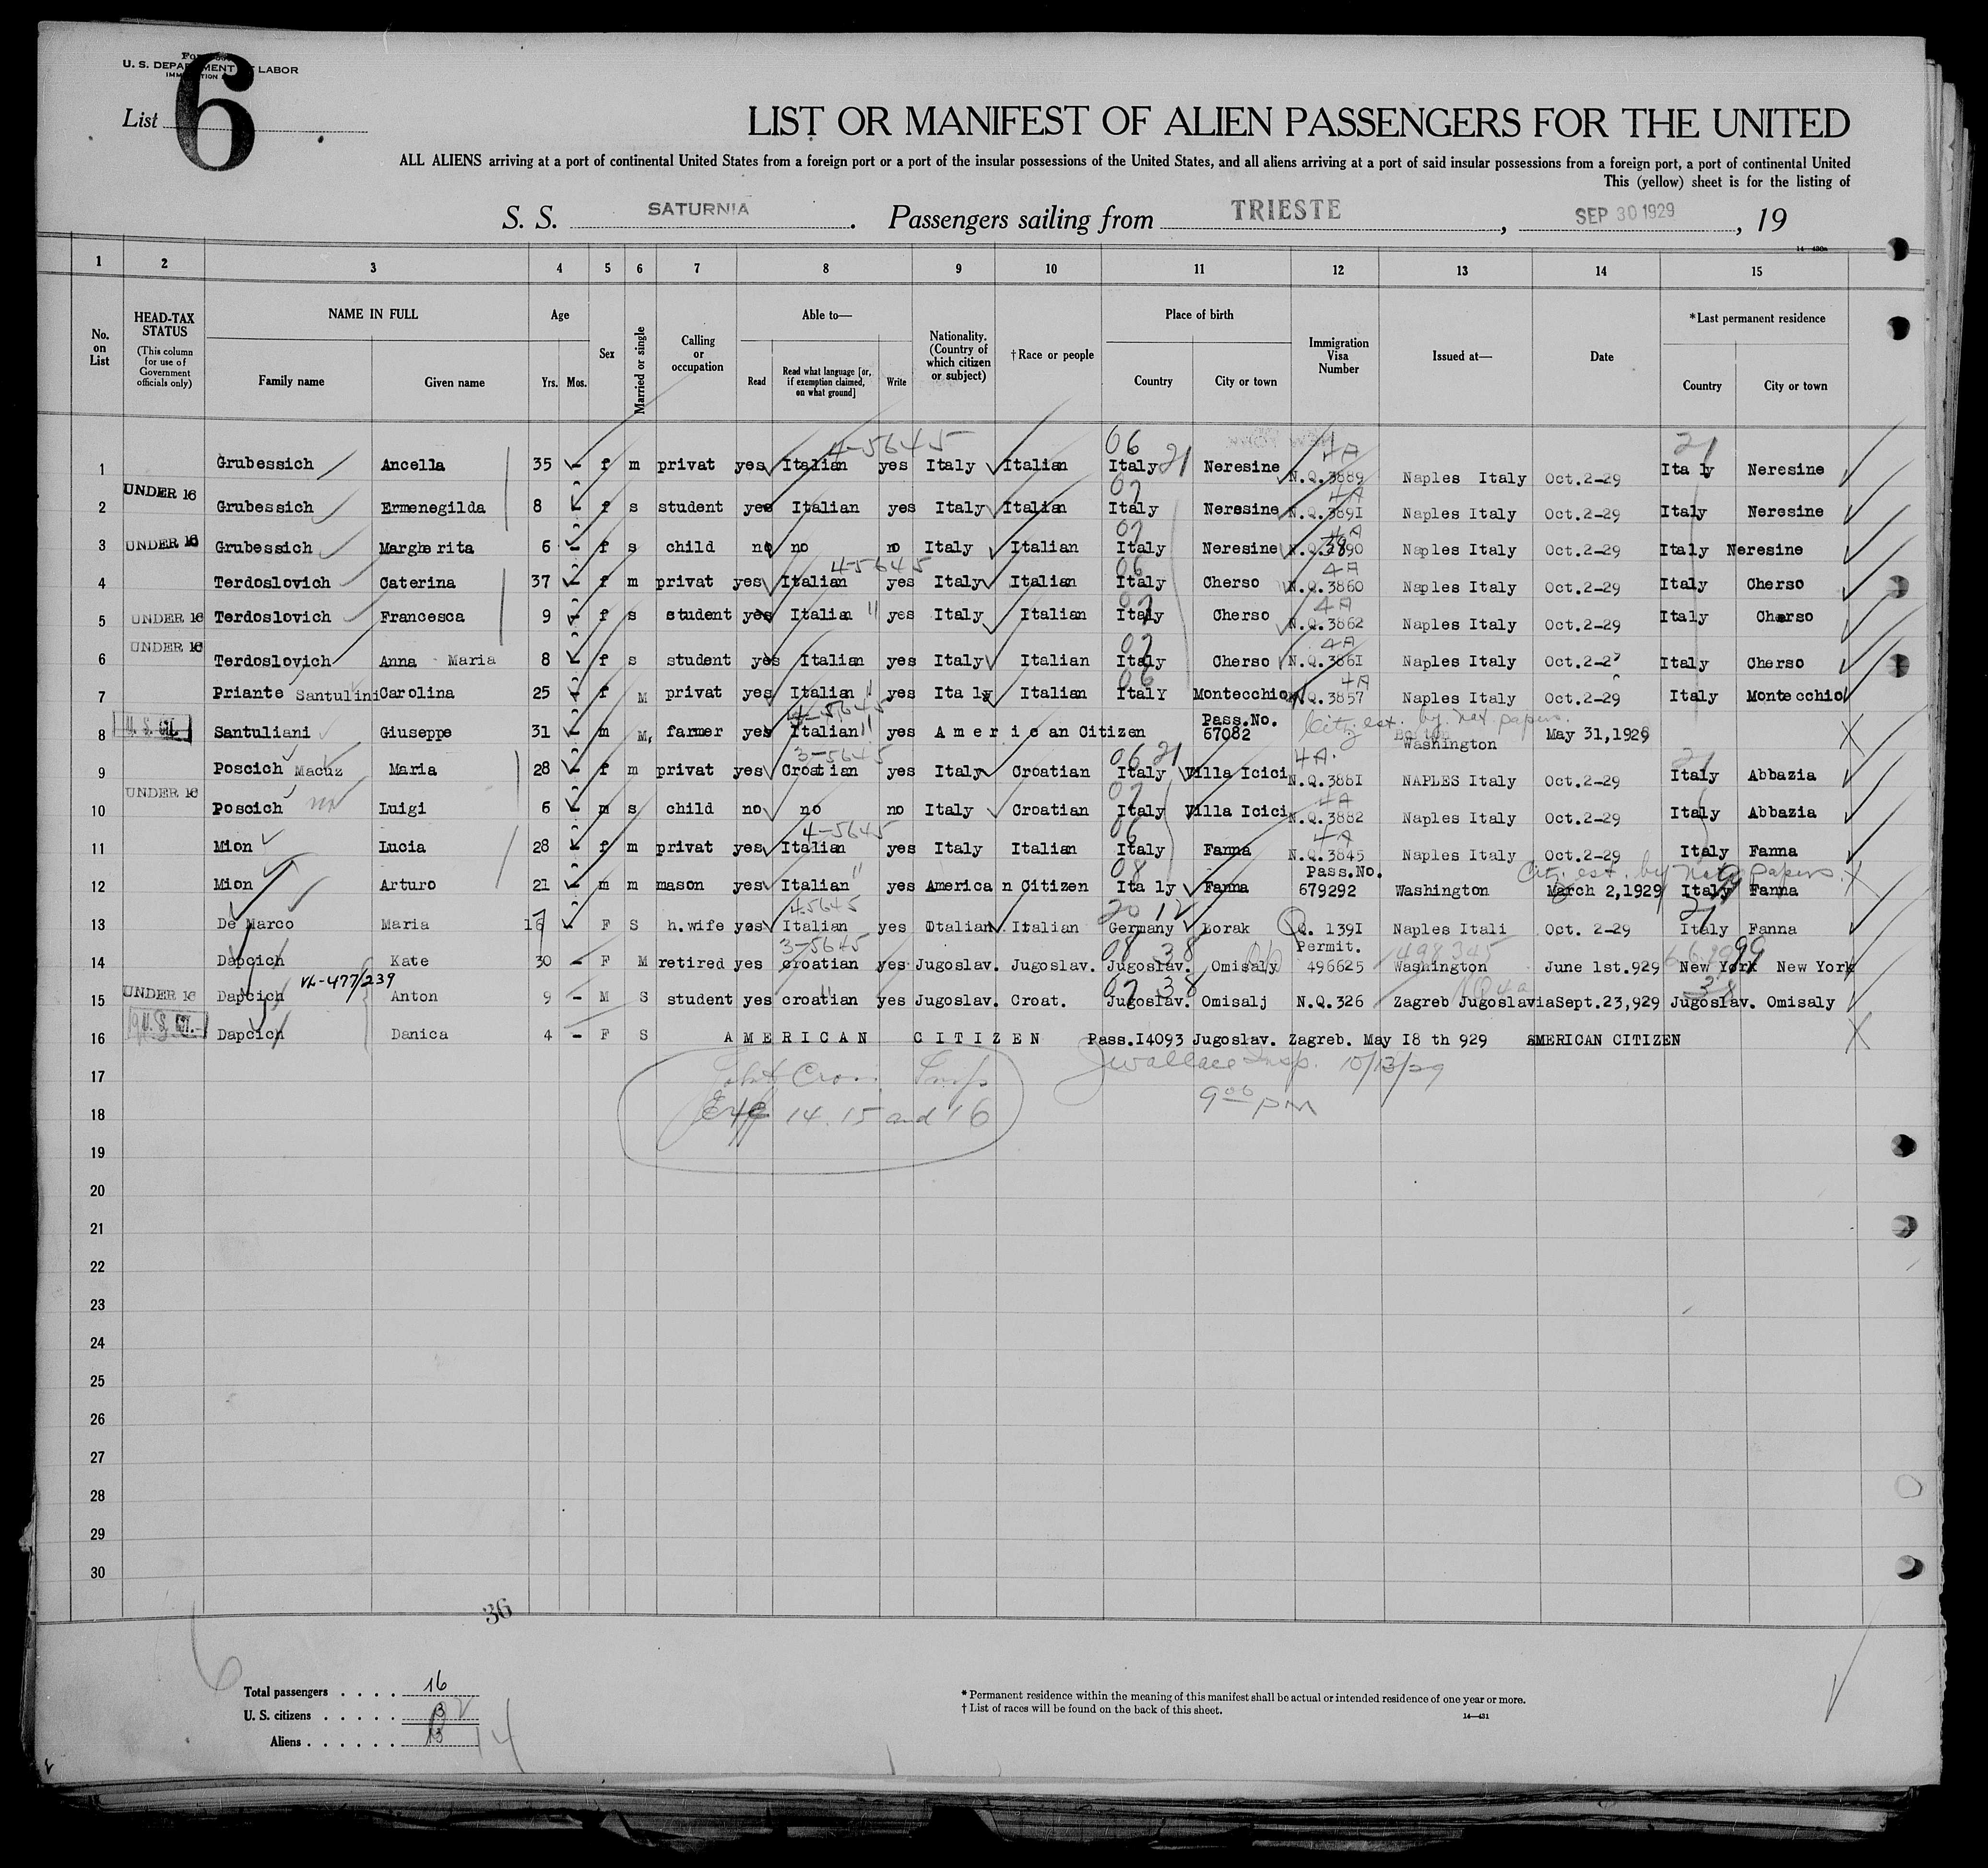 U. S. DEPARTMENT OF LABOR
List 6
LIST OR MANIFEST OF ALIEN PASSENGERS FOR THE UNITED
ALL ALIENS arriving at a port of continental United States from a foreign port or a port of the insular possessions of the United States, and all aliens arriving at a port of said insular possessions from a foreign port, a port of continental United
This (yellow) sheet is for the listing of
S. S. SATURNIA. Passengers sailing from TRIESTE, SEP 30 1929, 19
14—430a
1 2 3 4 5 6 7 8 9 10 11 12 13 14 15
No. on List
HEAD-TAX STATUS (This column for use of Government officials only)
NAME IN FULL
Family name Given name
Age
Yrs. Mos.
Sex
Married or single
Calling or occupation
Able to—
Read
Read what language [or, if exemption claimed, on what ground]
Write
Nationality. (Country of which citizen or subject)
†Race or people
Place of birth
Country City or town
Immigration Visa Number
Issued at—
Date
*Last permanent residence
Country City or town
4-5645 06 4A 21
1 Grubessich Ancella 35 - f m privat yes Italian yes Italy Italian Italy 21 Neresine N.Q.3889 Naples Italy Oct.2-29 Ita ly Neresine
UNDER 16 07 4A
2 Grubessich Ermenegilda 8 - f s student yes Italian yes Italy Italian Italy Neresine N.Q.389I Naples Italy Oct.2-29 Italy Neresine
07 4A
3 UNDER 16 Grubessich Marghe rita 6 - f s child no no no Italy Italian Italy Neresine N.Q.3890 Naples Italy Oct.2-29 Italy Neresine
4-5645 06 4A
4 Terdoslovich Caterina 37 - f m privat yes Italian yes Italy Italian Italy Cherso N.Q.3860 Naples Italy Oct.2-29 Italy Cherso
07 4A
5 UNDER 16 Terdoslovich Francesca 9 - f s student yes Italian " yes Italy Italian Italy Cherso N.Q.3862 Naples Italy Oct.2-29 Italy Cherso
UNDER 16 07 4A
6 Terdoslovich Anna Maria 8 - f s student yes Italian yes Italy Italian Italy Cherso N.Q.386I Naples Italy Oct.2-2 Italy Cherso
06 4A
7 Priante Santulini Carolina 25 - f M privat yes Italian " yes Ita ly Italian Italy Montecchio N.Q.3857 Naples Italy Oct.2-29 Italy Monte cchio
4-5645 Pass.No. Citz est. by nat papers.
8 U. S. Cit. Santuliani Giuseppe 31 - m M, farmer yes Italian " yes A m e r i c an Citizen 67082 Washington May 31,1929
3-5645 06 21 4A. 21
9 Poscich Macuz Maria 28 - f m privat yes Croatian yes Italy Croatian Italy Villa Icici N.Q.388I NAPLES Italy Oct.2-29 Italy Abbazia
UNDER 16 07 4A
10 Poscich Luigi 6 - m s child no no no Italy Croatian Italy Villa Icici N.Q.3882 Naples Italy Oct.2-29 Italy Abbazia
4-5645 06 4A
11 Mion Lucia 28 - f m privat yes Italian yes Italy Italian Italy Fanna N.Q.3845 Naples Italy Oct.2-29 Italy Fanna
08 Pass.No. Citz est. by Nat Papers.
12 Mion Arturo 21 - m m mason yes Italian " yes America n Citizen Ita ly Fanna 679292 Washington March 2,1929 Italy Fanna
45645 20 12 21
13 De Marco Maria F S h.wife yes Italian yes Italian Italian Germany Lorak Q. 139I Naples Itali Oct. 2-29 Italy Fanna
3-5645 08 38 Permit. 498345 99
14 Dapcich Kate 30 - F M retired yes croatian yes Jugoslav. Jugoslav. Jugoslav. Omisaly 496625 Washington June 1st.929 New York New York
VL-477/239
UNDER 16 07 38 NQ4a 38
15 Dapcich Anton 9 - M S student yes croatian " yes Jugoslav. Croat. Jugoslav. Omisalj N.Q.326 Zagreb Jugoslavia Sept.23,929 Jugoslav. Omisaly
U. S. Cit.
16 Dapcich Danica 4 - F S A M E R I C A N C I T I Z E N Pass.I4093 Jugoslav. Zagreb. May I8 th 929 AMERICAN CITIZEN
17 Insp JWallace Insp. 10/13/29
18 14. 15 and 16 9 00 PM
19
20
21
22
23
24
25
26
27
28
29
30
36
6
Total passengers 16
U. S. citizens 3 2
Aliens 13 14
* Permanent residence within the meaning of this manifest shall be actual or intended residence of one year or more.
† List of races will be found on the back of this sheet.
14—431